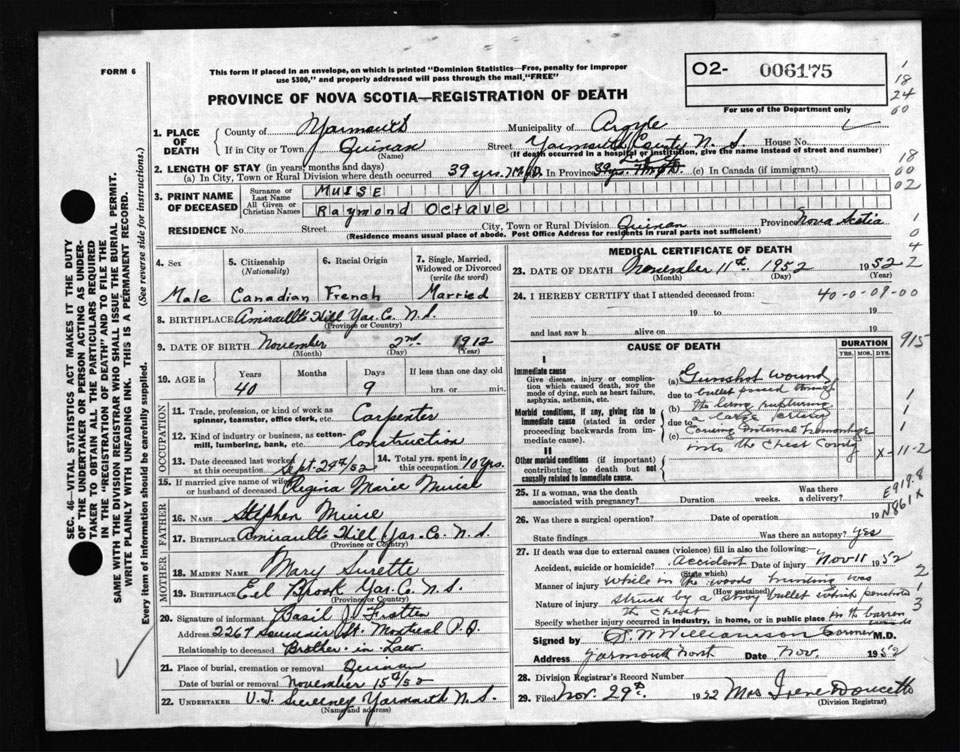 FORM 6
This form if placed in an envelope, on which is printed "Dominion Statistics—Free, penalty for improper
use $300," and properly addressed will pass through the mail "FREE"
O2- 006175
For use of the Department only
1
18
24
60
PROVINCE OF NOVA SCOTIA—REGISTRATION OF DEATH
1. PLACE OF DEATH
County of Yarmouth Municipality of Argyle
If in City or Town Quinan Street Yarmouth County N. S. House No.
(Name) (If death occurred in a hospital or institution, give the name instead of street and number)
2. LENGTH OF STAY (in years, months and days)
(a) In City, Town or Rural Division where death occurred 39 yrs. In Province 39 yrs. (c) In Canada (if immigrant)
18
60
02
3. PRINT NAME OF DECEASED
Surname or Last Name MUISE
All Given or Christian Names Raymond Octave
RESIDENCE No. Street City, Town or Rural Division Quinan Province Nova Scotia
(Residence means usual place of abode. Post Office Address for residents in rural parts not sufficient)
SEC. 46—VITAL STATISTICS ACT MAKES IT THE DUTY
OF THE UNDERTAKER OR PERSON ACTING AS UNDER-
TAKER TO OBTAIN ALL THE PARTICULARS REQUIRED
IN THE "REGISTRATION OF DEATH" AND TO FILE THE
SAME WITH THE DIVISION REGISTRAR WHO SHALL ISSUE THE BURIAL PERMIT.
WRITE PLAINLY WITH UNFADING INK. THIS IS A PERMANENT RECORD.
Every item of information should be carefully supplied. (See reverse side for instructions.)
4. Sex
Male
5. Citizenship
(Nationality)
Canadian
6. Racial Origin
French
7. Single, Married,
Widowed or Divorced
(write the word)
Married
8. BIRTHPLACE Amirault's Hill Yar. Co. N. S.
(Province or Country)
9. DATE OF BIRTH November 2nd. 1912
(Month) (Day) (Year)
10. AGE in Years Months Days If less than one day old
40 9 hrs. or min.
OCCUPATION
11. Trade, profession, or kind of work as
spinner, teamster, office clerk, etc. Carpenter
12. Kind of industry or business, as cotton-
mill, lumbering, bank, etc. Construction
13. Date deceased last worked
at this occupation Sept. 29th/52
14. Total yrs. spent in
this occupation 10 Yrs.
15. If married give name of wife
or husband of deceased Regina Marie Muise
FATHER
16. NAME Stephen Muise
17. BIRTHPLACE Amiraults Hill Yar. Co. N. S.
(Province or Country)
MOTHER
18. MAIDEN NAME Mary Surette
19. BIRTHPLACE Eel Brook Yar. C. N. S.
(Province or Country)
20. Signature of informant Basil J.
Address 2267 St. Montreal P. Q.
Relationship to deceased Brother-in-Law.
21. Place of burial, cremation or removal Quinan
Date of burial or removal November 15th/52
22. UNDERTAKER V. J. Sweeney Yarmouth N. S.
(Name and Address)
MEDICAL CERTIFICATE OF DEATH
23. DATE OF DEATH November 11th. 1952 1952
(Month) (Day) (Year)
24. I HEREBY CERTIFY that I attended deceased from: 40-0-09-00
19 to 19
and last saw h alive on 19
915
CAUSE OF DEATH
DURATION
YRS. MOS. DYS.
I
Immediate cause
Give disease, injury or complica-
tion which caused death, NOT the
mode of dying, such as heart failure,
asphyxia, asthenia, etc.
Morbid conditions, if any, giving rise to
immediate cause (stated in order
proceeding backwards from im-
mediate cause).
II
Other morbid conditions (if important)
contributing to death but not
causally related to immediate cause.
(a) Gunshot wound
due to bullet passed through
(b) the lung rupturing
due to large artery
(c) Causing internal hemorrhage
into the Chest Cavity
X-11-2
25. If a woman, was the death
associated with pregnancy? Duration weeks. Was there
a delivery?
E919.8
N861X
26. Was there a surgical operation? Date of operation 19
State findings Was there an autopsy? Yes
27. If death was due to external causes (violence) fill in also the following:—
Accident, suicide or homicide? Accident Date of injury Nov 11 1952
(State which)
Manner of injury while in the woods hunting was
(How sustained)
Nature of injury struck by a stray bullet which penetrated
the chest
Specify whether injury occurred in industry, in home, or in public place in the barren
Signed by Williamson Coroner M.D.
Address Yarmouth North Date Nov. 1952
28. Division Registrar's Record Number
29. Filed Nov. 29th. 1952 Mrs Irene Doucette
(Division Registrar)